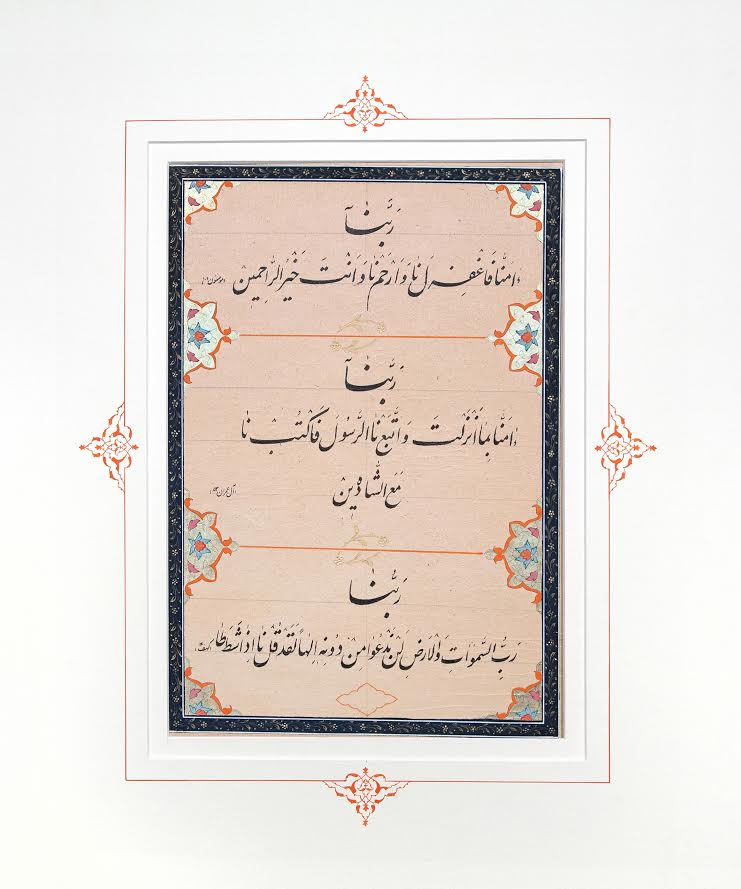 رَبَّنآ
ءامَنّا فَاغْفِرلَنا وَارْحَمْنا وَاَنْتَ خَیْرُ الرّاحِمینَ
رَبَّنآ
ءامَنّا بِمآاَنْزَلتَ وَاتَّبَعْنَا الرَّسُولَ فَاکْتُبْنا
مَعَ الشّاهِدینَ
آل عمران ۵۳
رَبُّنا
رَبُّ السَّمواتِ وَالاَرضِ لَنْ نَدْعُوَا مِنْ دُونِهِ اِلهاً لَقَدْ قُلْنا اِذاً شَطَطا